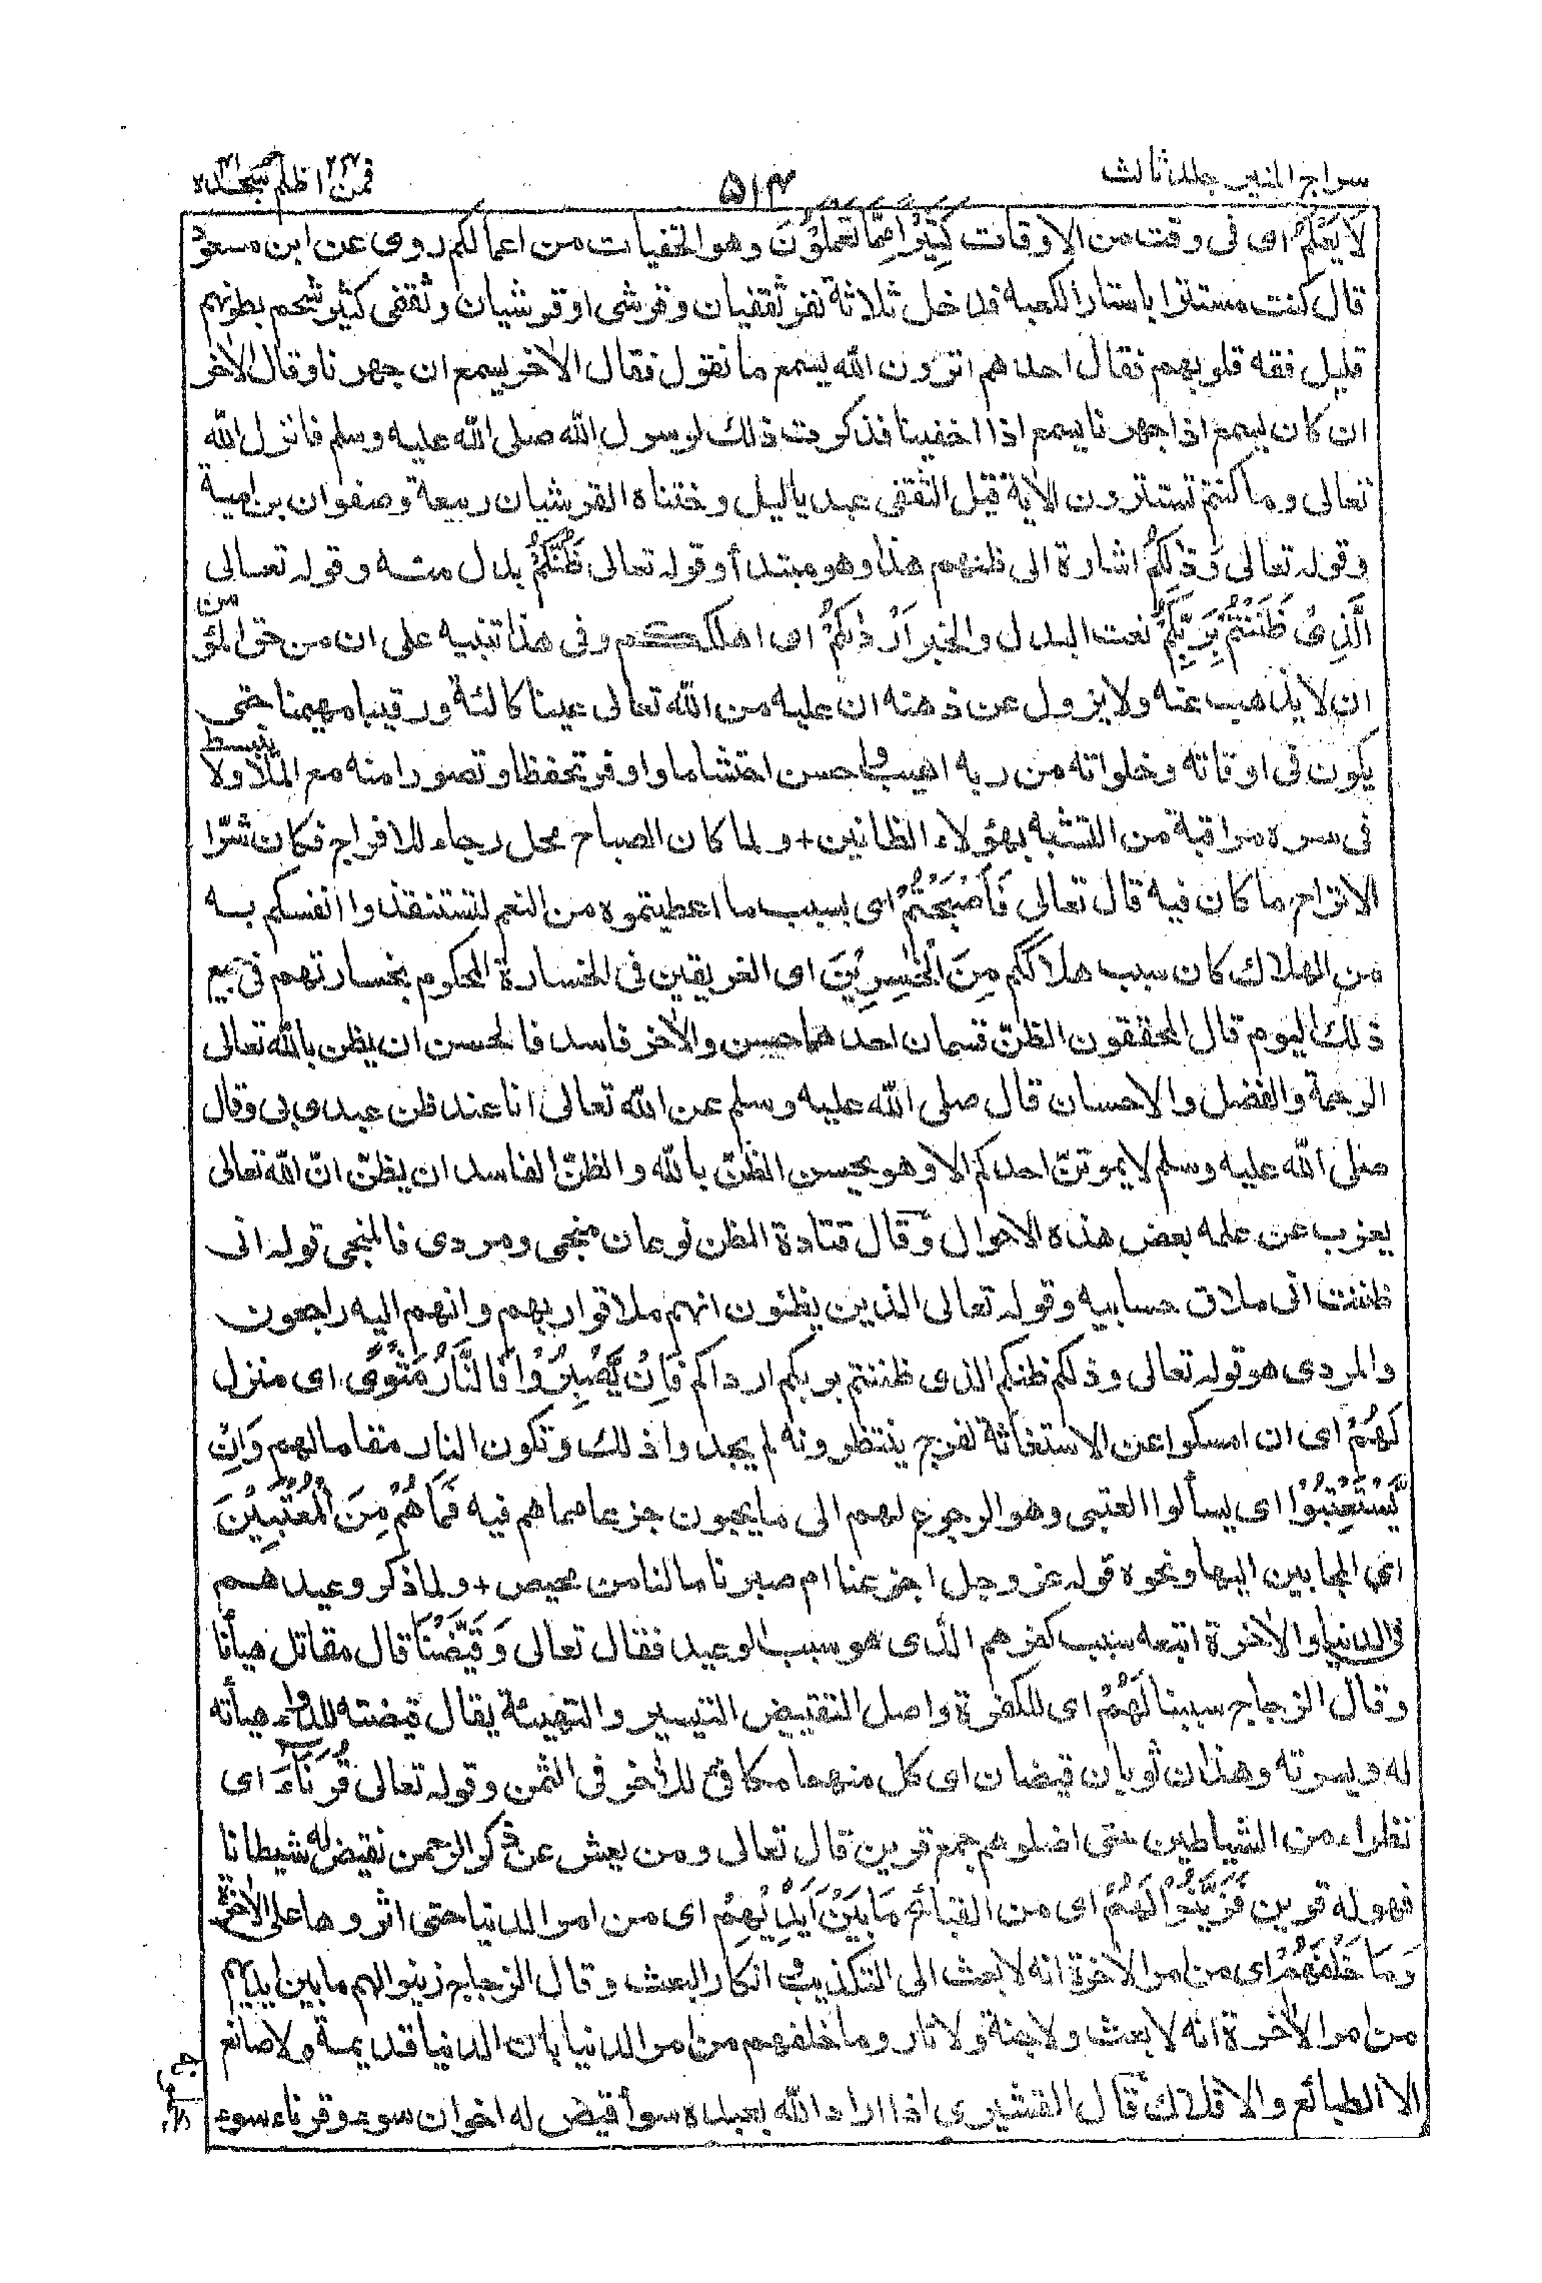 سراج المنير جلد ثالث
۵۱۴
فمن اظلم ۲۴ سجده ۴۱
لَا يَعْلَمُ اى فى وقت من الاوقات كَثِيْرًا مِّمَّا تَعْمَلُوْنَ وهو الخفيات من اعمالكم روى عن ابن مسعود
قال كنت مستترا باستار الكعبه فدخل ثلاثة نفر ثقفيان وقرشى او قرشيان وثقفى كثير شحم بطونهم
قليل فقه قلوبهم فقال احدهم اترون الله يسمع ما نقول فقال الاخر يسمع ان جهرنا وقال الاخر
ان كان يسمع اذا جهرنا يسمع اذا اخفينا فذكرت ذلك لرسول الله صلى الله عليه وسلم فانزل الله
تعالى وما كنتم تستترون الاية قيل الثقفى عبد ياليل وختناه القرشيان ربيعة وصفوان بن امية
وقوله تعالى وَذٰلِكُمْ اشارة الى ظنهم هذا وهو مبتدأ وقوله تعالى ظَنُّكُمْ بدل منه وقوله تعالى
الَّذِىْ ظَنَنْتُمْ بِرَبِّكُمْ نعت البدل والخبر اَرْدٰىكُمْ اى اهلككم وفى هذا تنبيه على ان من حق المؤمن
ان لا يذهب عنه ولا يزول عن ذهنه ان عليه من الله تعالى عينا كالئة ورقيبا مهيمنا حتى
يكون فى اوقاته وخلواته من ربه اهيب و احسن احتشاما و اوفر تحفظا وتصورا منه مع الملا ولا ينبسط
فى سره مراقبة من التشبه بهؤلاء الظانين + ولما كان الصباح محل رجاء للافراح فكان شرّا
الاتراح ما كان فيه قال تعالى فَاَصْبَحْتُمْ اى بسبب ما اعطيتموه من النعم لتستنقذوا انفسكم به
من الهلاك كان سبب هلاككم مِنَ الْخٰسِرِيْنَ اى الغريقين فى الخسارة المحكوم بخسارتهم فى جميع
ذلك اليوم قال المحققون الظنّ قسمان احدهما حسن والاخر فاسد فالحسن ان يظن بالله تعالى
الرحمة والفضل والاحسان قال صلى الله عليه وسلم عن الله تعالى انا عند ظن عبدى بى وقال
صلى الله عليه وسلم لا يموتنّ احدكم الا وهو يحسن الظنّ بالله والظنّ الفاسد ان يظنّ انّ الله تعالى
يعزب عن علمه بعض هذه الاحوال وقال قتادة الظن نوعان منجى ومردى فالمنجى قوله انى
ظننت انى ملاق حسابيه وقوله تعالى الذين يظنون انهم ملاقوا ربهم وانهم اليه راجعون
والمردى هو قوله تعالى وذلكم ظنكم الذى ظننتم بربكم ارداكم فَاِنْ يَّصْبِرُوْا فَالنَّارُ مَثْوًى اى منزل
لَهُمْ اى ان امسكوا عن الاستغاثة لفرج ينتظرونه لم يجدوا ذلك وتكون النار مقاما لهم وَاِنْ
يَّسْتَعْتِبُوْا اى يسألوا العتبى وهو الرجوع لهم الى ما يحبون جزعا مما هم فيه فَمَا هُمْ مِنَ الْمُعْتَبِيْنَ
اى المجابين اليها ونحوه قوله عز وجل اجزعنا ام صبرنا ما لنا من محيص + ولما ذكر وعيدهم
فى الدنيا والاخرة اتبعه سبب كفرهم الذى هو سبب الوعيد فقال تعالى وَقَيَّضْنَا قال مقاتل هيأنا
وقال الزجاج سببنا لَهُمْ اى للكفرة واصل التقييض التيسير والتهيئة يقال قيضته للدواء هيأته
له ويسرته وهذان ثوبان قيضان اى كل منهما مكافئ للأخر فى الثمن وقوله تعالى قُرَنَآءَ اى
نظراء من الشياطين حتى اضلوهم جمع قرين قال تعالى ومن يعش عن ذكر الرحمن نقيض له شيطانا
فهو له قرين فَزَيَّنُوْا لَهُمْ اى من القبائح مَا بَيْنَ اَيْدِيْهِمْ اى من امر الدنيا حتى اثروها على الاخرة
وَمَا خَلْفَهُمْ اى من امر الاخرة انه لا بعث الى التكذيب و انكار البعث وقال الزجاج زينوا لهم ما بين ايديهم
من امر الأخرة انه لا بعث ولا جنة ولا نار وما خلفهم من امر الدنيا بان الدنيا قديمة ولا صانع
الا الطبائع والافلاك قال القشيرى اذا اراد الله بعبده سوأ قيض له اخوان سوء وقرناء سوء